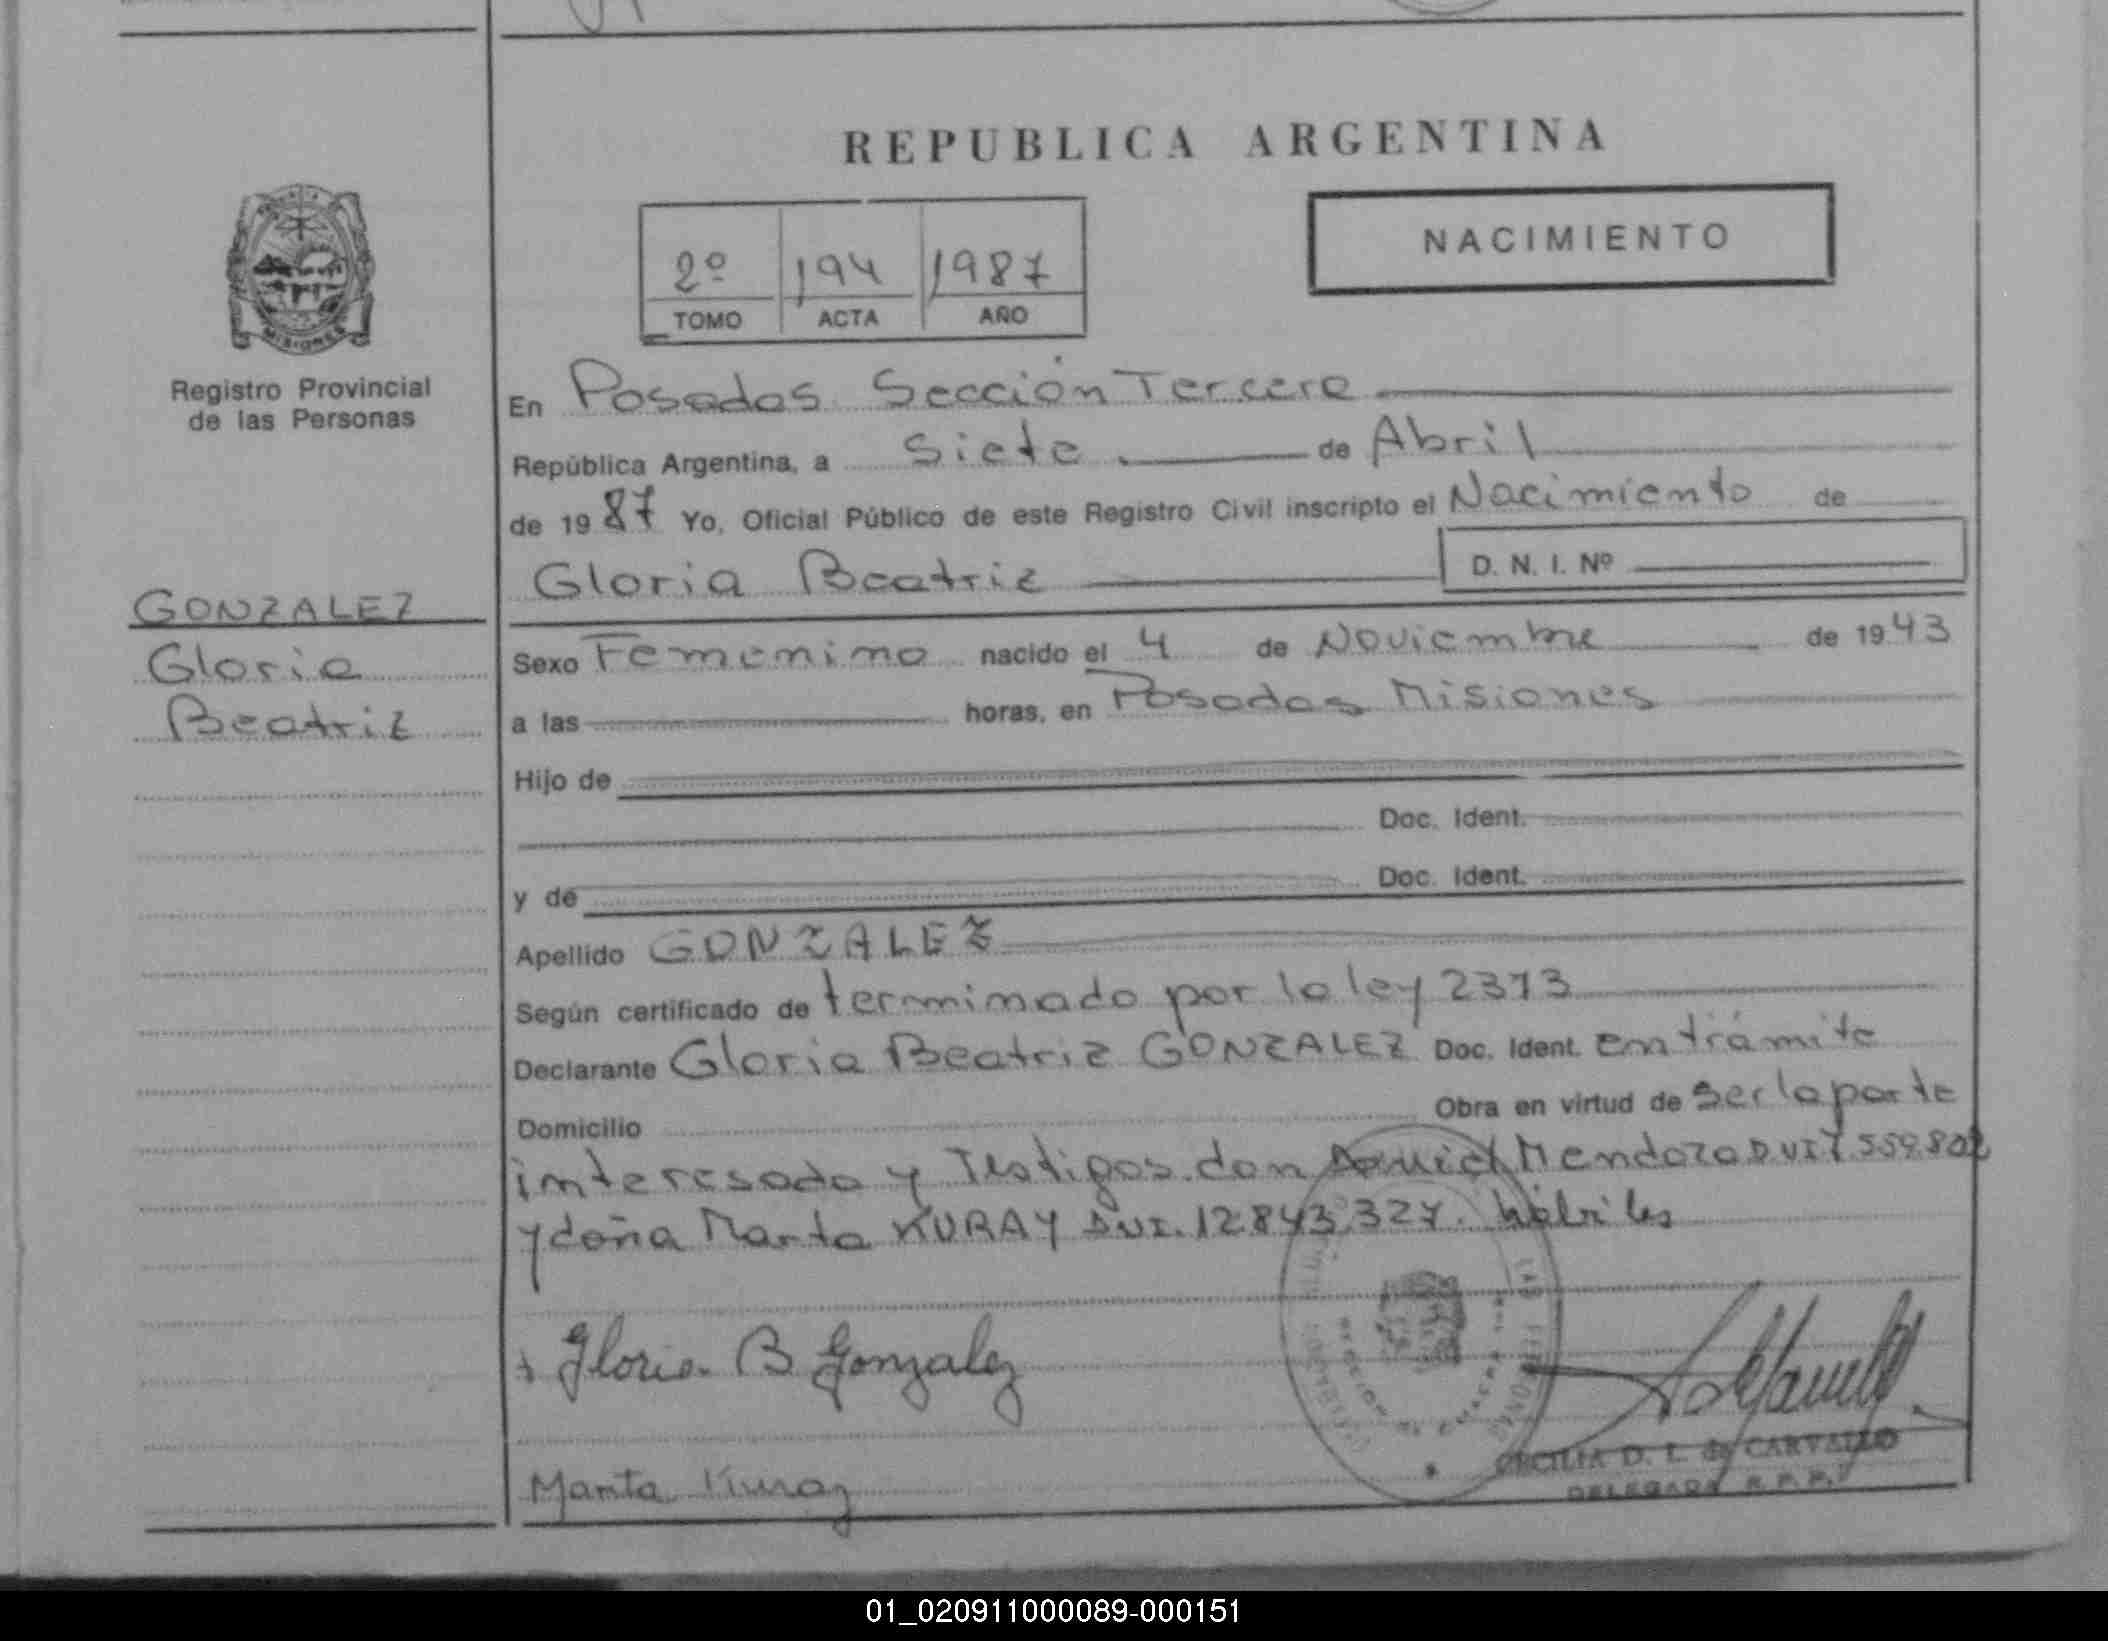 REPUBLICA ARGENTINA
NACIMIENTO
2º 194 1987
TOMO ACTA AÑO
MISIONES
Registro Provincial
de las Personas
GONZALEZ
Gloria
Beatriz
En Posadas Sección Tercera
República Argentina, a siete de Abril
de 1987 Yo, Oficial Público de este Registro Civil inscripto el Nacimiento de
Gloria Beatriz D. N. I. Nº
Sexo Femenino nacido el 4 de Noviembre de 1943
a las horas, en Posadas Misiones
Hijo de
Doc. Ident.
y de Doc. Ident.
Apellido GONZALEZ
Según certificado de terminado por la ley 2373
Declarante Gloria Beatriz GONZALEZ Doc. Ident. en trámite
Domicilio Obra en virtud de ser la parte
interesada y Testigos don Mendoza DNI 7.559.802
y doña Marta KURAY DNI. 12.843.327. hábiles
Gloria B Gonzalez
CECILIA D. L. de CARVALLO
DELEGADA R.P.P.
Marta Kuray
01_020911000089-000151